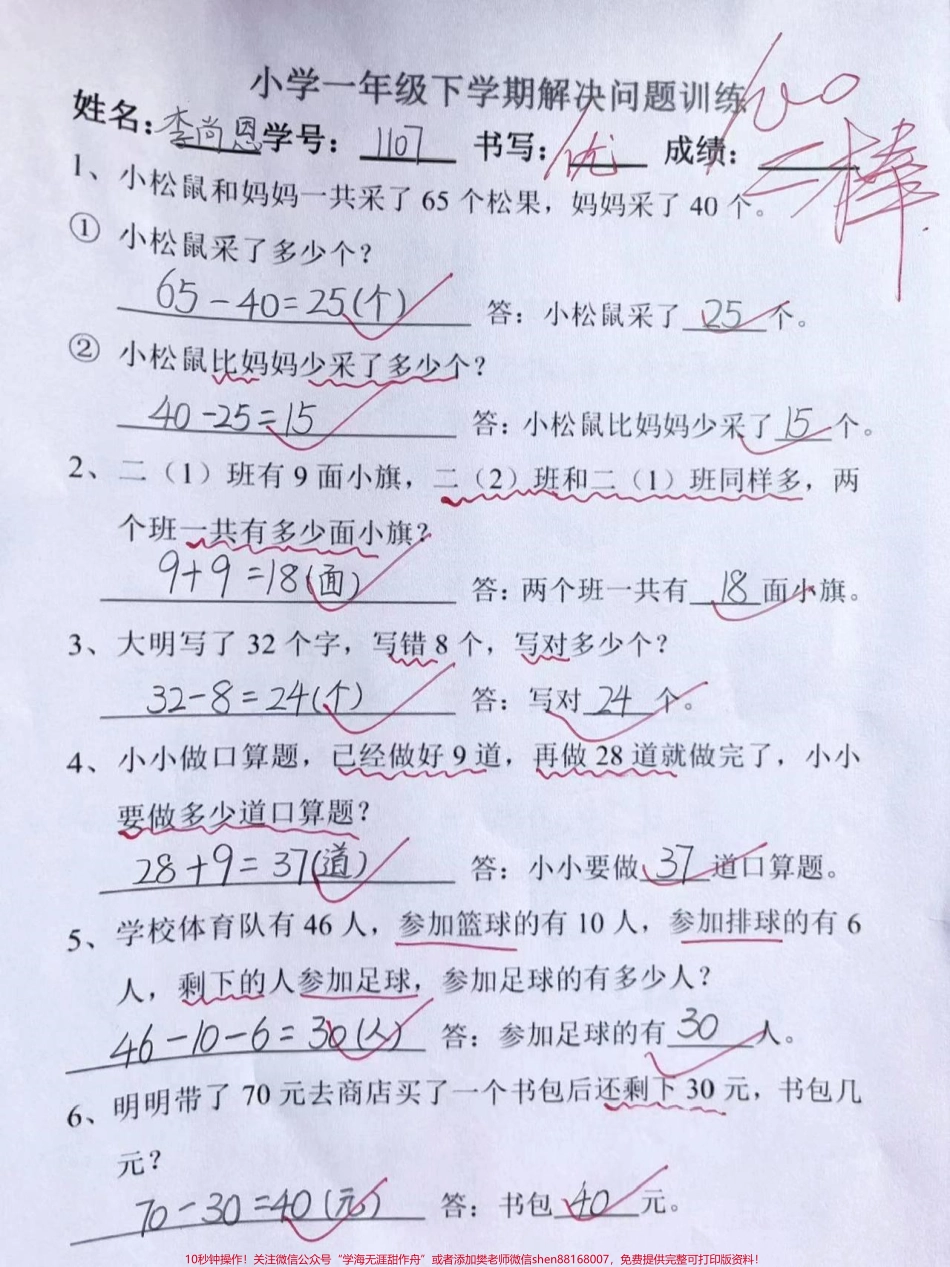 小学一年级下学期解决问题训练
姓名：李尚恩 学号：1107 书写：优 成绩：100 棒
1、小松鼠和妈妈一共采了 65 个松果，妈妈采了 40 个。
① 小松鼠采了多少个？
65-40=25(个) 答：小松鼠采了 25 个。
② 小松鼠比妈妈少采了多少个？
40-25=15 答：小松鼠比妈妈少采了 15 个。
2、二（1）班有 9 面小旗，二（2）班和二（1）班同样多，两
个班一共有多少面小旗？
9+9=18(面) 答：两个班一共有 18 面小旗。
3、大明写了 32 个字，写错 8 个，写对多少个？
32-8=24(个) 答：写对 24 个。
4、小小做口算题，已经做好 9 道，再做 28 道就做完了，小小
要做多少道口算题？
28+9=37(道) 答：小小要做 37 道口算题。
5、学校体育队有 46 人，参加篮球的有 10 人，参加排球的有 6
人，剩下的人参加足球，参加足球的有多少人？
46-10-6=30(人) 答：参加足球的有 30 人。
6、明明带了 70 元去商店买了一个书包后还剩下 30 元，书包几
元？
70-30=40(元) 答：书包 40 元。
10秒钟操作！关注微信公众号“学海无涯甜作舟”或者添加樊老师微信shen88168007，免费提供完整可打印版资料！